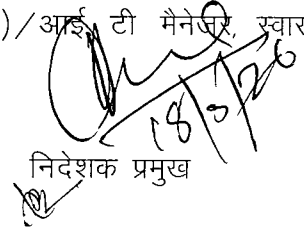 )/आई, टी मैनेजर, स्वार
18/5/20
निदेशक प्रमुख